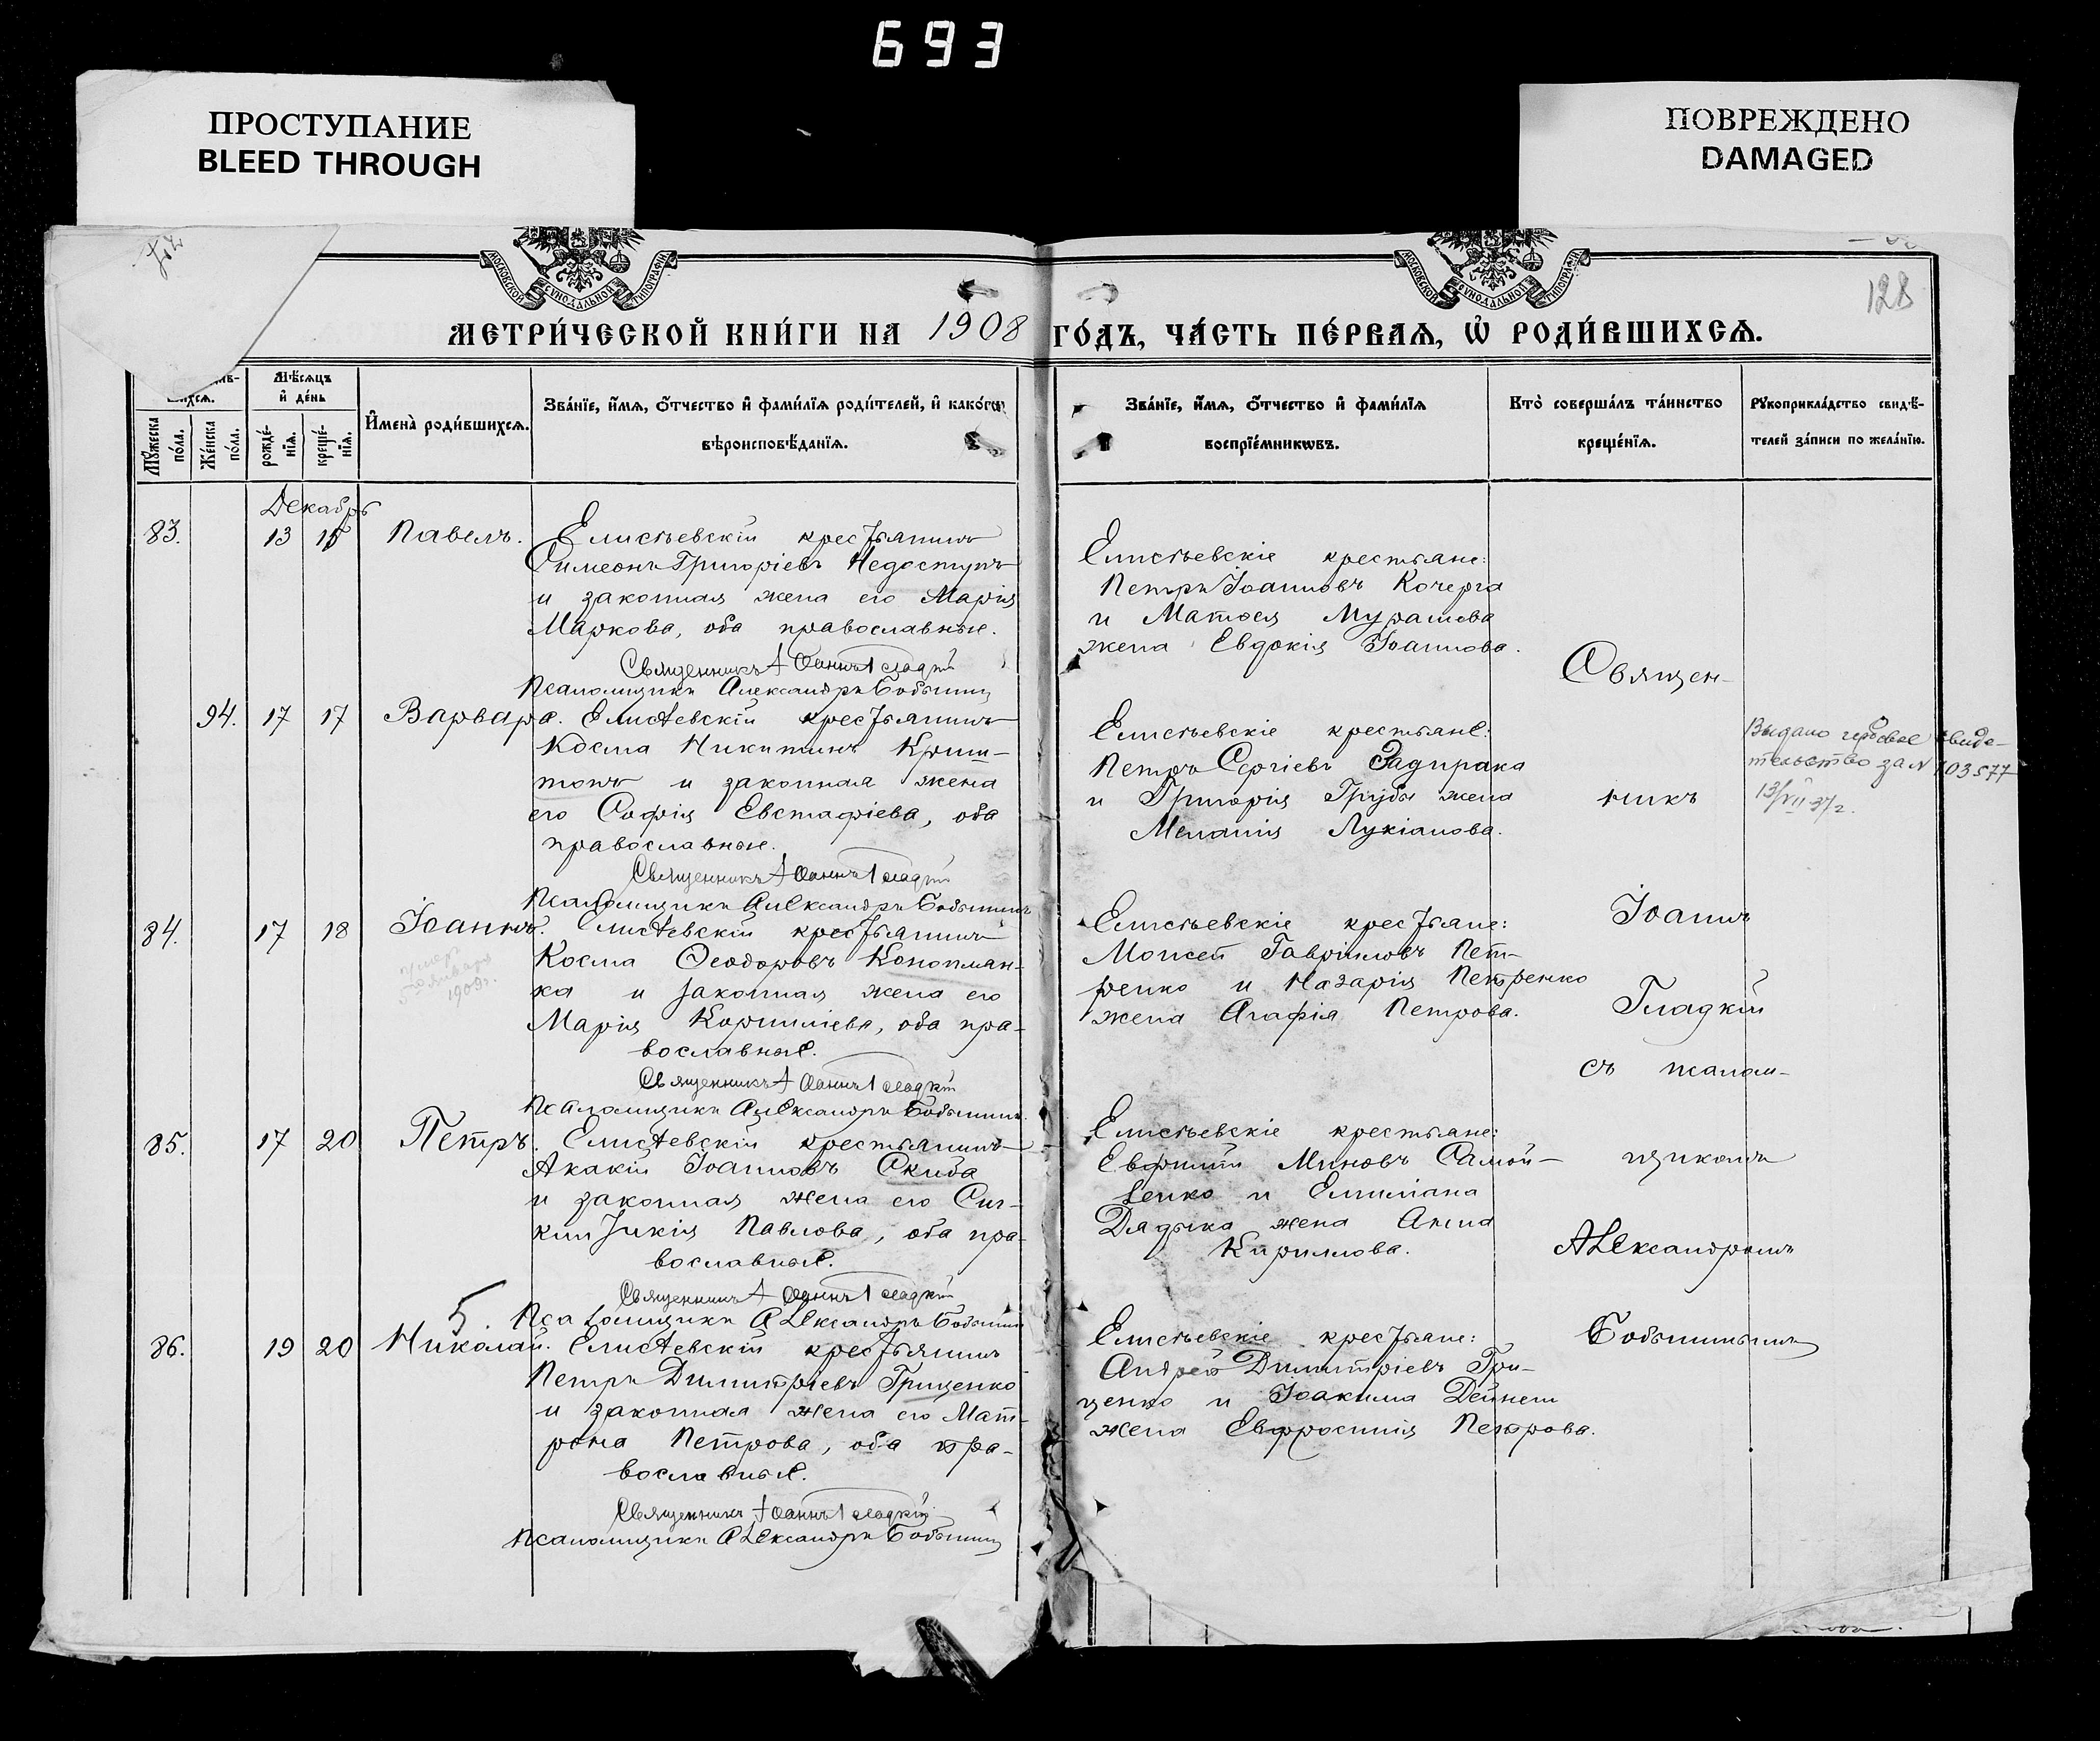 693
ПРОСТУПАНИЕ
BLEED THROUGH
ПОВРЕЖДЕНО
DAMAGED
МОСКОВСКОЙ СѴНОДАЛЬНОЙ ТИПОГРАФІИ
МОСКОВСКОЙ СѴНОДАЛЬНОЙ ТИПОГРАФІИ
128
МЕТРИ́ЧЕСКОЙ КНИ́ГИ НА 1908 ГО́ДЪ, ЧА́СТЬ ПЕ́РВАѦ, Ѡ҆ РОДИ́ВШИХСѦ.
Мѣ́сѧцъ
и҆ де́нь
Мꙋ́жеска по́ла.
Же́нска по́ла.
рожде́нїѧ.
креще́нїѧ.
И҆мена̀ роди́вшихсѧ.
Зва́нїе, и҆́мѧ, ѻ҆́тчество и҆ фами́лїѧ роди́телей, и҆ како́гѡ
вѣроисповѣ́данїѧ.
Зва́нїе, и҆́мѧ, ѻ҆́тчество и҆ фами́лїѧ
воспрїе́мникѡвъ.
Кто̀ соверша́лъ та́инство
креще́нїѧ.
Рꙋкоприкла́дство свидѣ́-
телей за́писи по жела́нїю.
Декабрь
83. 13 15 Павелъ. Елисѣевскій крестьянинъ
Симеонъ Григоріевъ Недоступъ
и законная жена его Марія
Маркова, оба православные.
Священникъ Іоаннъ Гладкій
Псаломщикъ Александръ Бобошинъ
Елисѣевскіе крестьяне:
Петръ Іоанновъ Кочерга
и Матѳея Мурашова
жена Евдокія Іоаннова.
94. 17 17 Варвара. Елисѣевскій крестьянинъ
Косма Никитинъ Криш-
топъ и законная жена
его Софія Евстафіева, оба
православные.
Священникъ Іоаннъ Гладкій
Псаломщикъ Александръ
Елисѣевскіе крестьяне:
Петръ Сергіевъ Задирака
и Григорія Грубы жена
Меланія Лукіанова.
Выдано гербовое свиде-
тельство за № 103577
13/VII 37г.
84. 17 18 Іоаннъ. Елисѣевскій крестьянинъ
умеръ
января
1909г.
Косма Ѳеодоровъ Коноплян-
ка и законная жена его
Марія Корниліева, оба пра-
вославные.
Священникъ Іоаннъ Гладкій
Псаломщикъ Александръ
Елисѣевскіе крестьяне:
Моисей Гавріиловъ Пет-
ренко и Назарія Петренко
жена Агафія Петрова.
85. 17 20 Петръ. Елисѣевскій крестьянинъ
Акакій Іоанновъ Скиба
и законная жена его Син-
клитикія Павлова, оба пра-
вославные.
Священникъ Іоаннъ Гладкій
Псаломщикъ Александръ
Елисѣевскіе крестьяне:
Евфимій Миновъ Самой-
ленко и Емиліана
Дядыка жена Анна
Кириллова.
5.
86. 19 20 Николай. Елисѣевскій крестьянинъ
Петръ Димитріевъ Гриценко
и законная жена его Мат-
рона Петрова, оба пра-
вославные.
Священникъ Іоаннъ Гладкій
Псаломщикъ Александръ
Елисѣевскіе крестьяне:
Андрей Димитріевъ Гри-
ценко и Іоакима Дейнеги
жена Евфросинія Петрова.
Священ-
никъ
Іоаннъ
Гладкій
съ псалом-
щикомъ
Александромъ